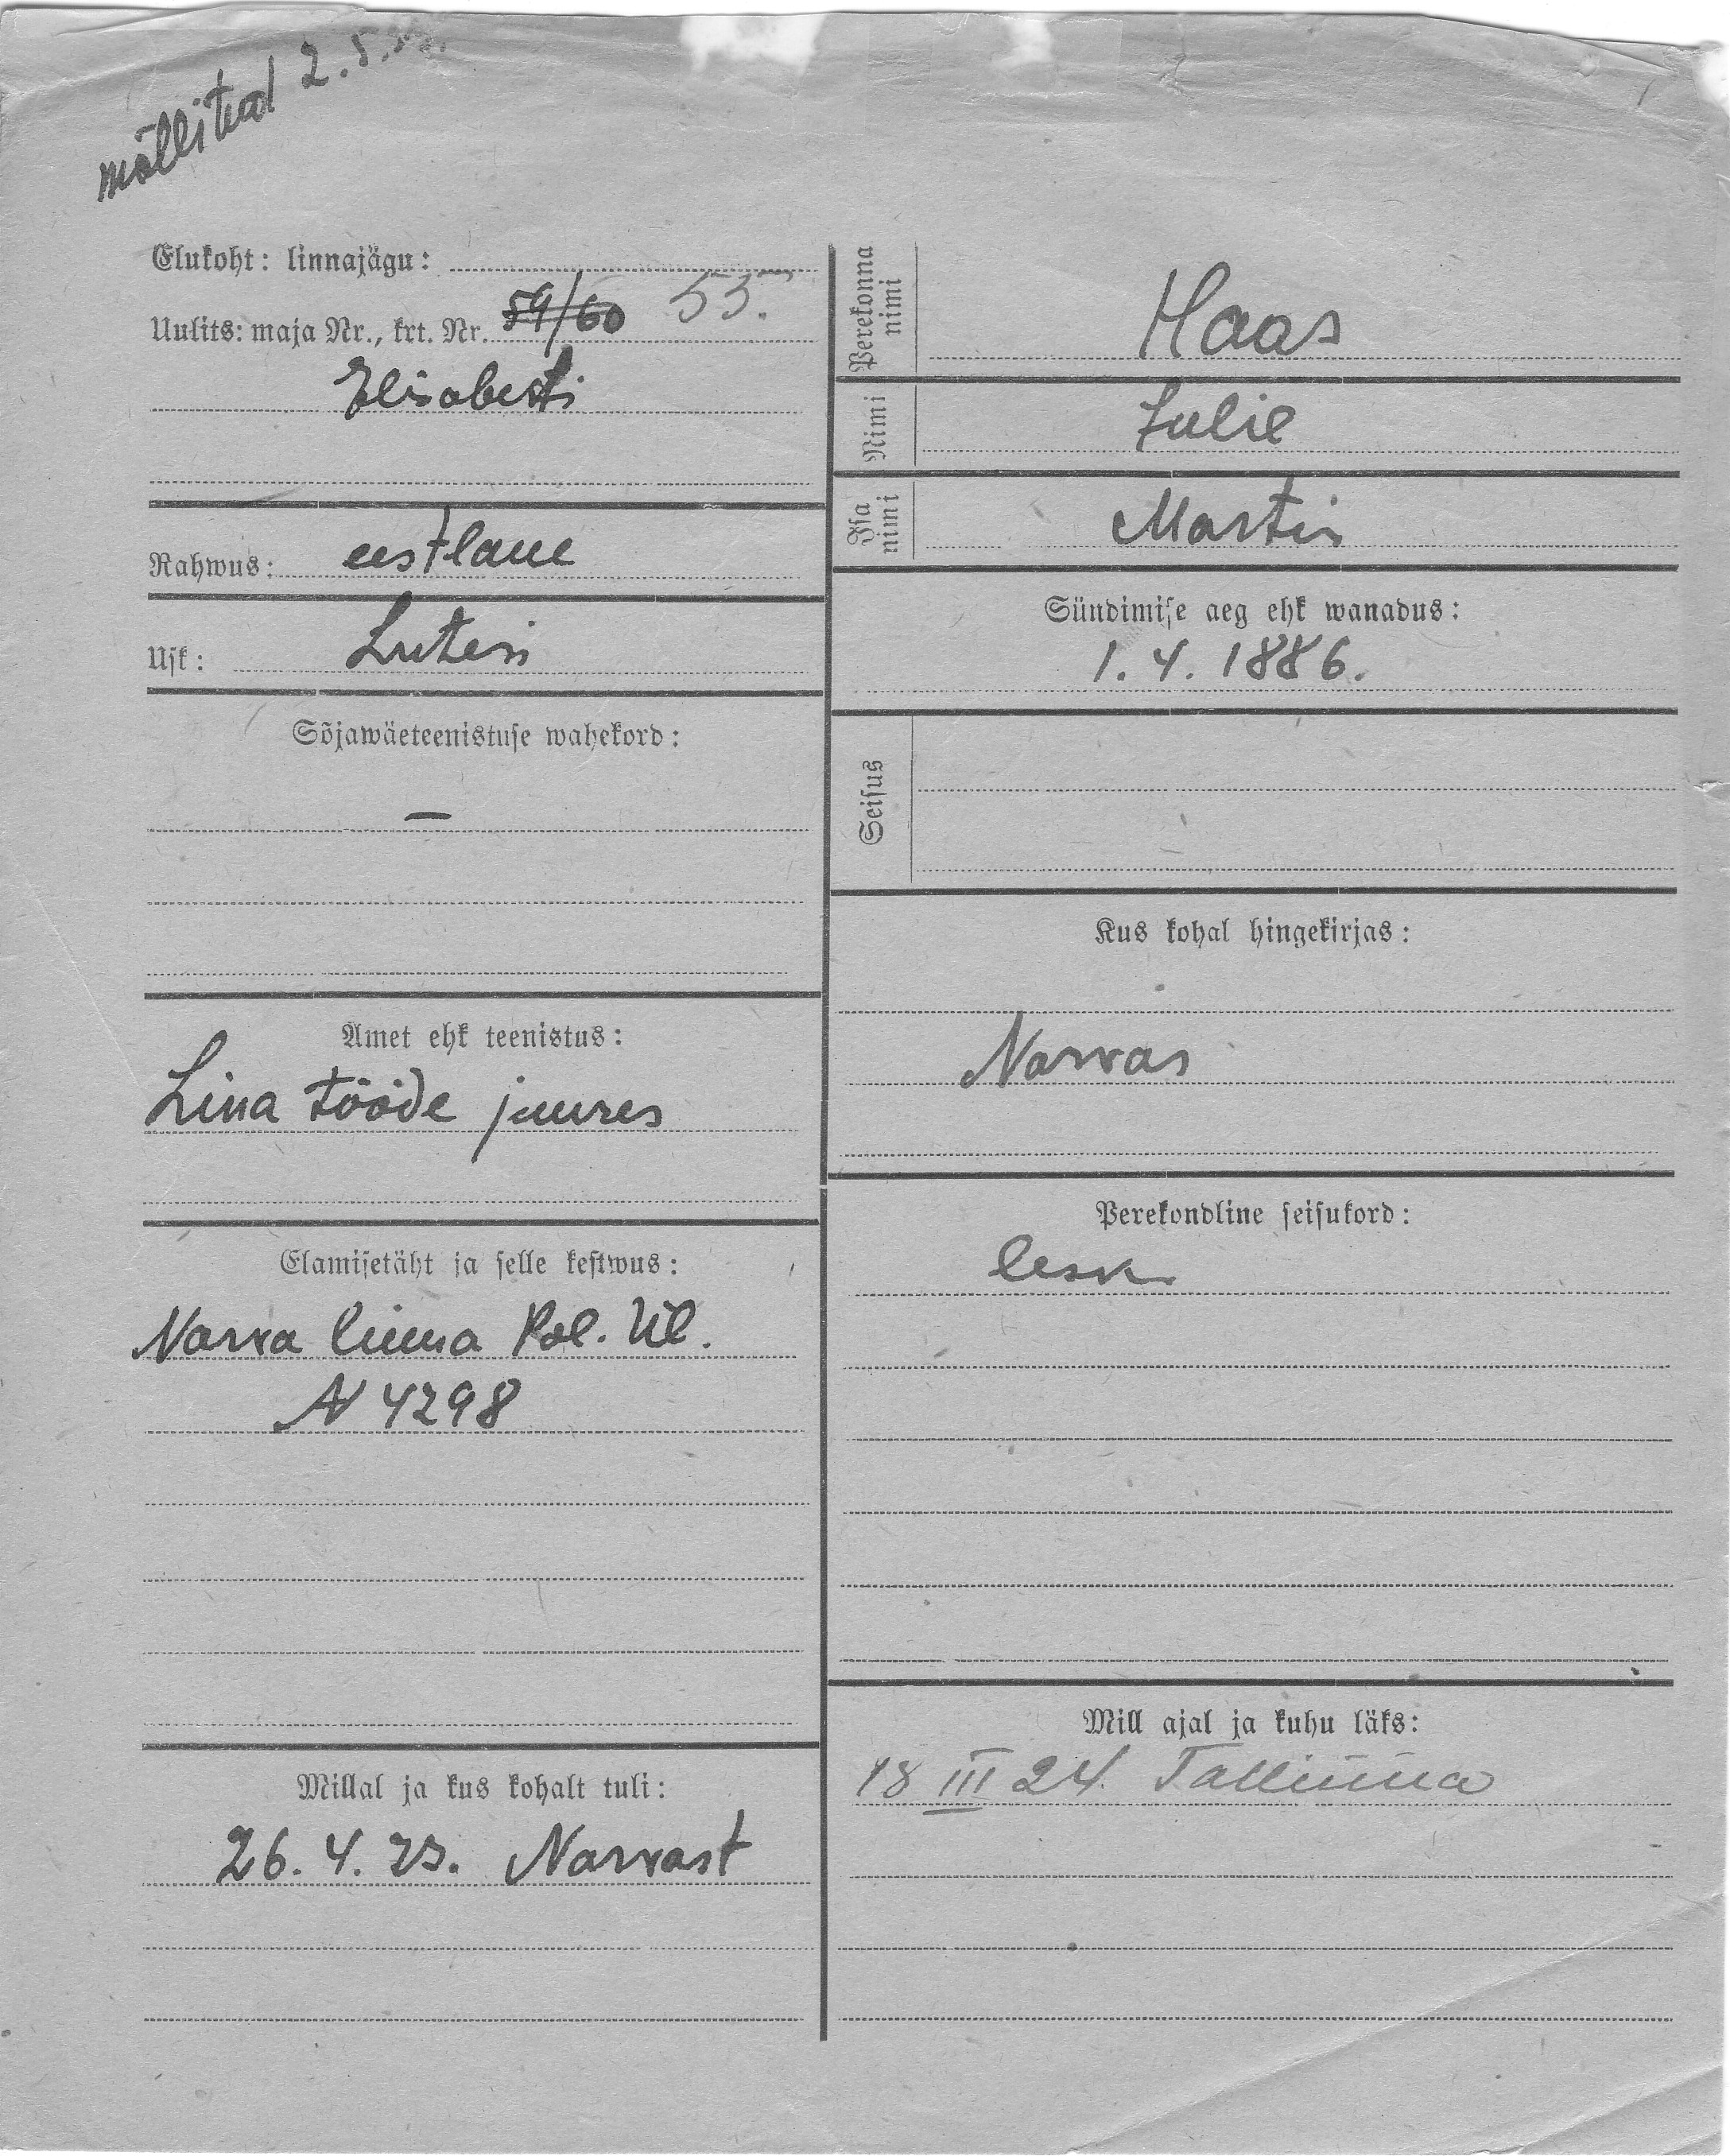 mällitud 2.5.
Elukoht: linnajägu:
Uulits: maja Nr., krt. Nr. 59/60 55.
Elisabeti
Rahwus: eestlane
Usk: Luteri
Sõjawäeteenistuse wahekord:
—
Amet ehk teenistus:
Lina tööde juures
Elamisetäht ja selle kestwus:
Narva linna Pol. Ül.
N 4298
Millal ja kus kohalt tuli:
26. 4. 23. Narvast
Perekonna nimi
Haas
Nimi
Julie
Isa nimi
Martin
Sündimise aeg ehk wanadus:
1. 4. 1886.
Seisus
Kus kohal hingekirjas:
Narvas
Perekondline seisukord:
lesk
Mill ajal ja kuhu läks:
18 III 24. Tallinna